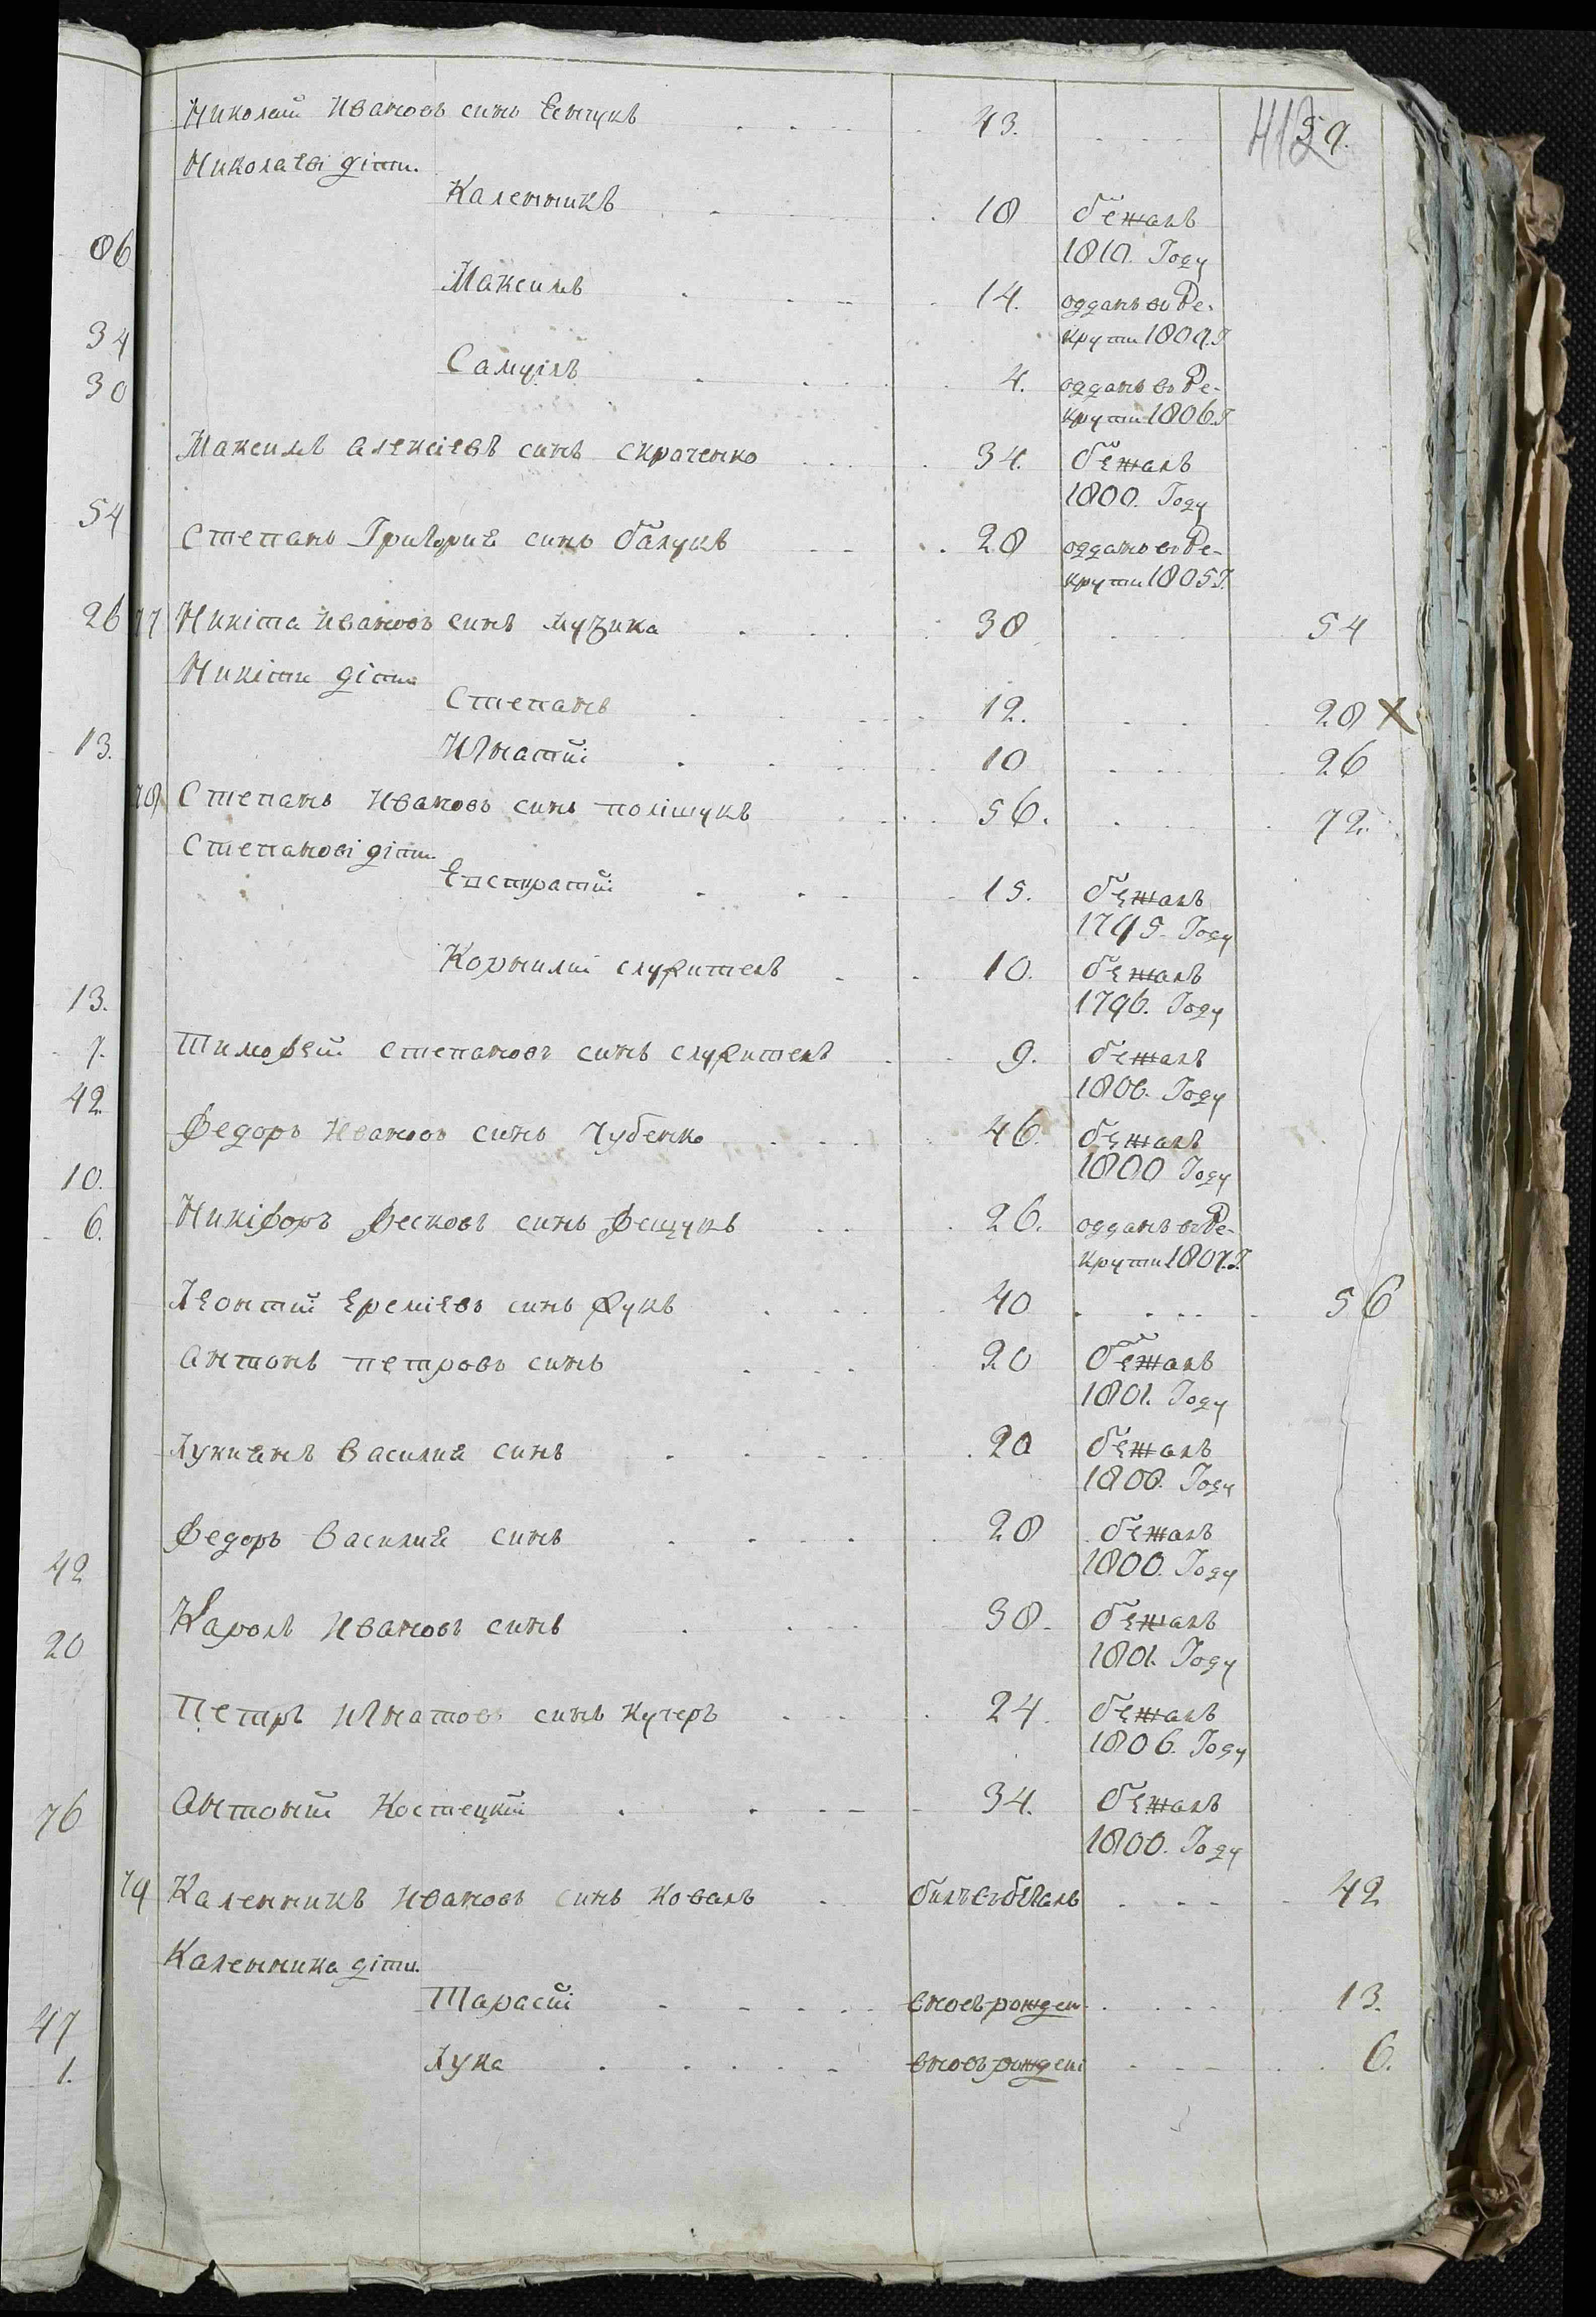 412
Николай Ивановъ синъ Енчукъ 43. 59.
Николаеві діти.
Каленникъ 18 бежалъ
1810. Году
Максимъ 14. отданъ въ Ре-
крути 1809. Г
Самуілъ 4. отданъ въ Ре-
крути 1806. Г
Максимъ Алексіевъ синъ Скраченко 34. бежалъ
1800. Году
Степанъ Григория синъ Балукъ 28 отданъ въ Ре-
крути 1805 Г.
77 Никіта Ивановъ синъ Музика 38 54
Никіти діти
Степанъ 12. 28 X
Игнатій 10 26
78 Степанъ Ивановъ синъ Поліщукъ 56. 72.
Степанові діти
Евстратій 15. бежалъ
1795. Году
Корнилий служитель 10. бежалъ
1796. Году
Тимофей Степановъ синъ служитель 9. бежалъ
1806. Году
Федоръ Ивановъ синъ Чубенко 46. бежалъ
1800 Году
Никіфоръ Фесковъ синъ Фещукъ 26. отданъ въ Ре-
крути 1807. Г.
Леонтий Ереміевъ синъ Жукъ 40 56
Антонъ Петровъ синъ 20 бежалъ
1801. Году
Лукиянъ Василия синъ 20 бежалъ
1808. Году
Федоръ Василия синъ 28 бежалъ
1800. Году
Кароль Ивановъ синъ 38. бежалъ
1801. Году
Петръ Игнатовъ синъ Кучеръ 24. бежалъ
1806. Году
Антоній Костецкій 34. бежалъ
1800. Году
79 Каленникъ Ивановъ синъ Коваль билъ въ бегахъ 42
Каленника діти.
Тарасій вновъ рожден 13.
Лука вновъ рожден 6.
86
34
30
54
26
13.
13.
7.
42
10.
6.
42
20
76
47
1.